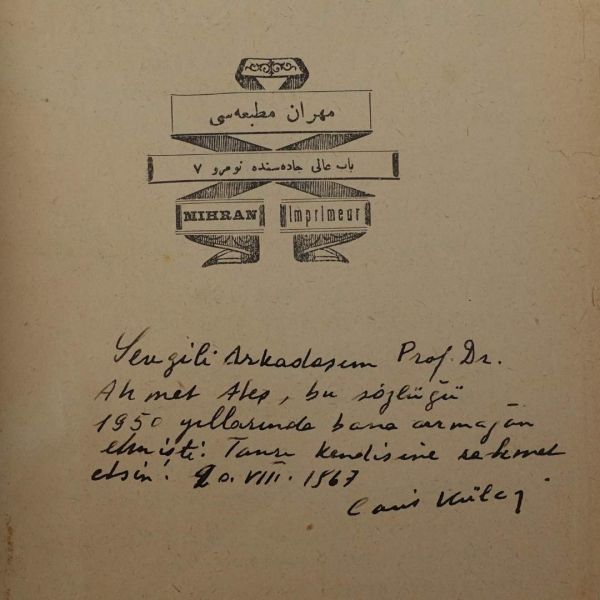 مهران مطبعه‌سی
باب عالی جاده‌سنده نومرو ۷
MIHRAN imprimeur
Sevgili Arkadaşım Prof. Dr.
Ahmet Ateş, bu sözlüğü
1950 yıllarında bana armağan
etmişti. Tanrı kendisine rahmet
etsin! 20.VIII.1967